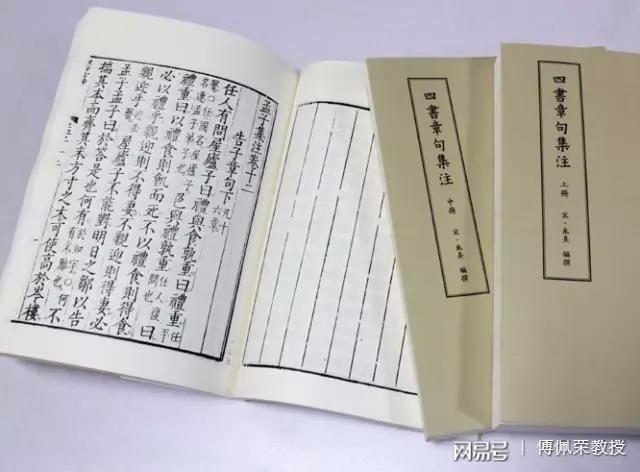 孟子集注卷十二
告子章句下 凡十六章
任人有問屋廬子曰禮與食孰重曰禮重 任平
聲○任國名屋廬子名連孟子弟子也 色與禮孰重 任人復問也 曰
禮重曰以禮食則飢而死不以禮食則得食
必以禮乎親迎則不得妻不親迎則得妻必
親迎乎 屋廬子不能對明日之鄒以告
孟子孟子曰於答是也何有 於如字○何有不難也 不
揣其本而齊其末方寸之木可使高於岑樓
四書章句集注
中冊
宋·朱熹 編撰
四書章句集注
上冊
宋·朱熹 編撰
网易号
傅佩荣教授